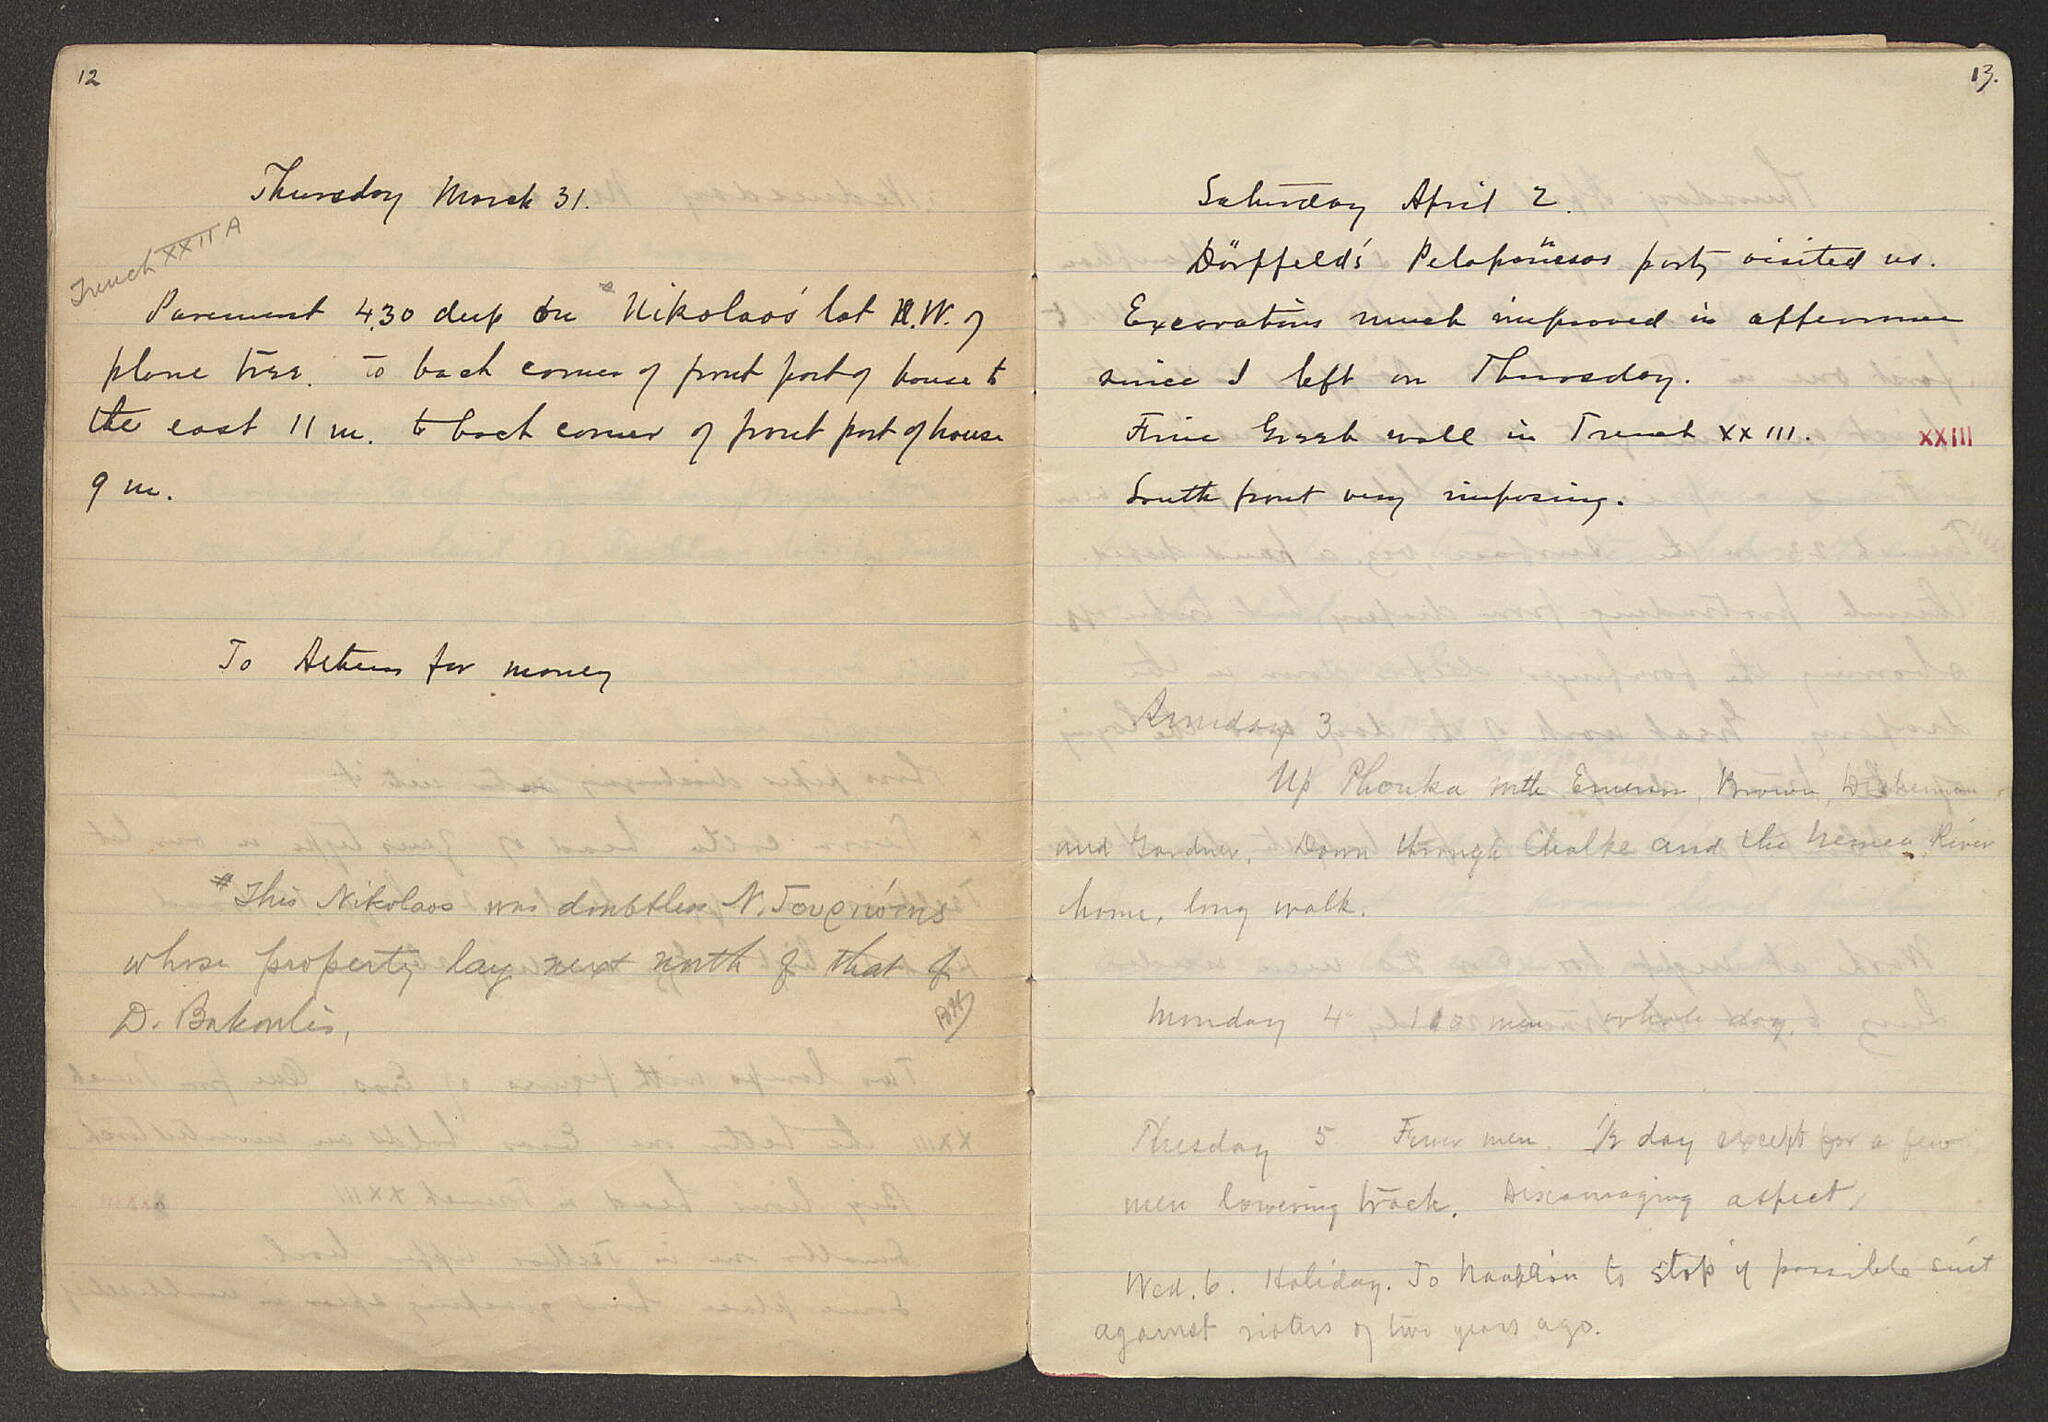 12
Thursday March 31.
Trench XXII A
Pavement 4.30 deep on * Nikolaos' lot N.W. of
plane tree. To back corner of front part of house to
the east 11 m. to back corner of front part of house
9 m.
To Athens for money
* This Nikolaos was doubtless N.
whose property lay next north of that of
D. Bakoulis.
13.
Saturday April 2.
Dörpfeld's Peloponnesos party visited us.
Excavations much improved in afternoon
since I left on Thursday.
Fine Greek wall in Trench XXIII. XXIII
South front very imposing.
Sunday 3
Up Phouka with Emerson, Brown, Dickerman
and Gardner. Down through Chalke and the Nemea River
home, long walk.
Monday 4 110 men whole day.
Tuesday 5 Fewer men. 1/2 day except for a few
men lowering track. Discouraging aspect.
Wed. 6. Holiday. To Nauplion to stop if possible suit
against rioters of two years ago.